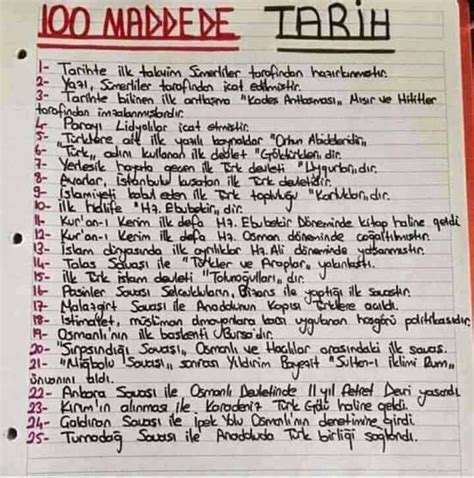 100 MADDEDE TARİH
1- Tarihte ilk takvim Sümerliler tarafından hazırlanmıştır.
2- Yazı, Sümerliler tarafından icat edilmiştir.
3- Tarihte bilinen ilk antlaşma "Kadeş Antlaşması" Mısır ve Hititler
tarafından imzalanmışlardır.
4- Parayı Lidyalılar icat etmiştir.
5- Türklere ait ilk yazılı kaynaklar "Orhun Abideleri"dir.
6- "Türk" adını kullanan ilk devlet "Göktürkler"dir.
7- Yerleşik hayata geçen ilk Türk devleti "Uygurlar"dır.
8- Avarlar, İstanbulu kuşatan ilk Türk devletidir.
9- İslamiyeti kabul eden ilk Türk topluluğu "Karluklar"dır.
10- ilk halife "Hz. Ebubekir"dir.
11- Kur'an-ı Kerim ilk defa Hz. Ebubekir Döneminde kitap haline geldi
12- Kur'an-ı Kerim ilk defa Hz. Osman döneminde çoğaltılmıştır.
13- İslam dünyasında ilk ayrılıklar Hz. Ali döneminde yaşanmıştır.
14- Talas Savaşı ile "Türkler ve Araplar" yakınlaştı.
15- ilk Türk islam devleti "Tolunoğulları"dır.
16- Pasinler Savaşı Selçukluların Bizans ile yaptığı ilk savaştır.
17- Malazgirt Savaşı ile Anadolunun Kapısı Türklere açıldı.
18- İstimalet, müslüman olmayanlara karşı uygulanan hoşgörü politikasıdır.
19- Osmanlı'nın ilk başkenti Bursa'dır.
20- "Sırpsındığı Savaşı" Osmanlı ve Haçlılar arasındaki ilk savaş.
21- "Niğbolu Savaşı" sonrası Yıldırım Bayezit "Sultan-ı İklimi Rum"
ünvanını aldı.
22- Ankara Savaşı ile Osmanlı Devletinde 11 yıl Fetret Devri yaşandı
23- Kırım'ın alınması ile Karadeniz Türk Gölü haline geldi.
24- Çaldıran Savaşı ile İpek Yolu Osmanlı'nın denetimine girdi
25- Turnadağ Savaşı ile Anadoluda Türk birliği sağlandı.